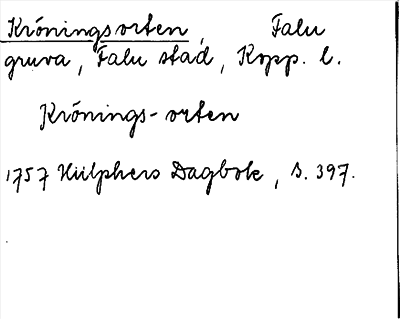 Kröningsorten, Falu
gruva, Falu stad, Kopp. l.
Krönings-orten
1757 Hülphers Dagbok, s. 397.